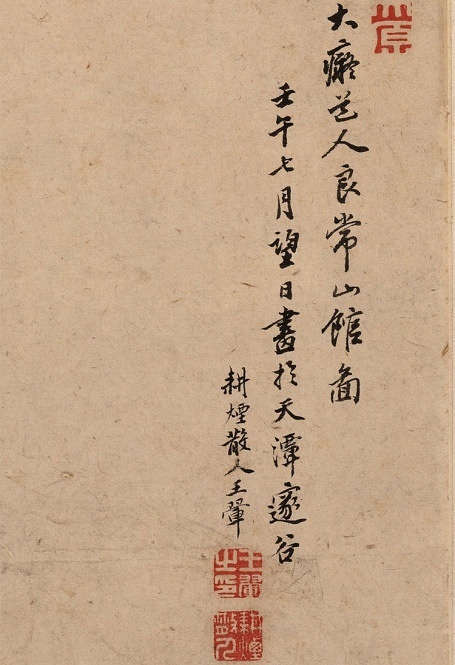 大癡道人良常山館圖
壬午七月望日畫於天潭邃谷
耕煙散人王翬
王翬之印